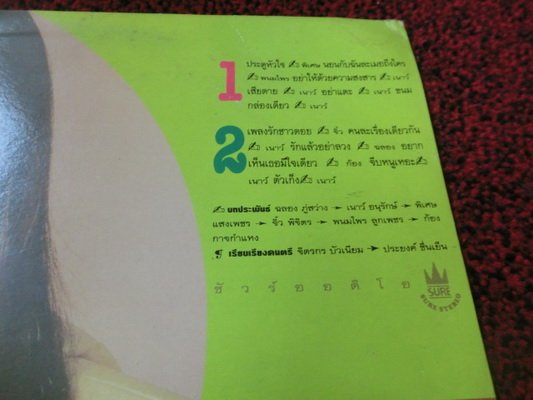 1
ประตูหัวใจ ✍ พิเศษ นอนกับฉันละเมอถึงใคร
✍ พนมไพร อย่าให้ด้วยความสงสาร ✍ เนาว์
เสียดาย ✍ เนาว์ อย่าแตะ ✍ เนาว์ ขนม
กล่องเดียว ✍ เนาว์
2
เพลงรักชาวดอย ✍ จิ๋ว คนละเรื่องเดียวกัน
✍ เนาว์ รักแล้วอย่าลวง ✍ ฉลอง อยาก
เห็นเธอมีใจเดียว ✍ ก้อง จีบหนูเหอะ✍
เนาว์ ตัวเก็ง✍ เนาว์
✍ บทประพันธ์ ฉลอง ภู่สว่าง → เนาว์ อนุรักษ์ → พิเศษ
แสงเพชร → จิ๋ว พิจิตร → พนมไพร ลูกเพชร → ก้อง
กาจกำแหง
เรียบเรียงดนตรี จิตรกร บัวเนียม → ประยงค์ ชื่นเย็น
ชัวร์ออดิโอ
SURE
SURE STEREO